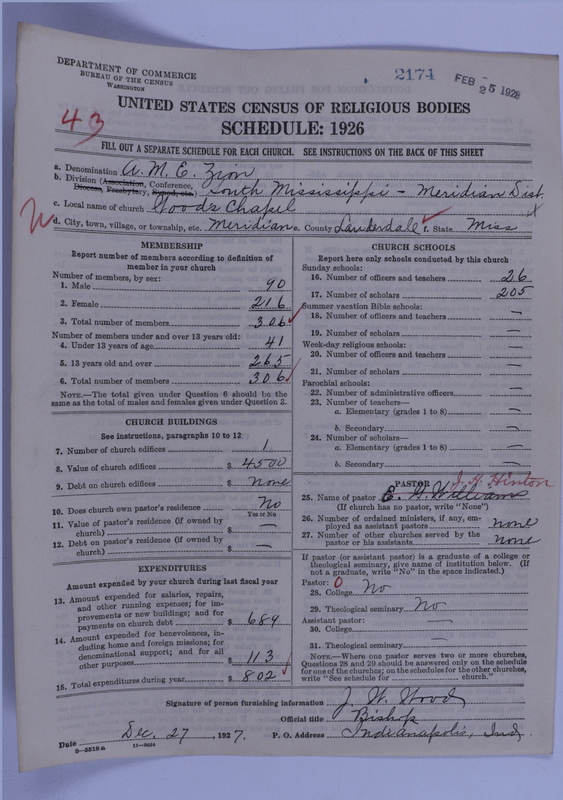 DEPARTMENT OF COMMERCE
BUREAU OF THE CENSUS
WASHINGTON
2174
FEB 25 1928
43
UNITED STATES CENSUS OF RELIGIOUS BODIES
SCHEDULE: 1926
FILL OUT A SEPARATE SCHEDULE FOR EACH CHURCH. SEE INSTRUCTIONS ON THE BACK OF THIS SHEET
a. Denomination A. M. E. Zion
b. Division (Association, Conference, Diocese, Presbytery, Synod, etc.) South Mississippi - Meridian Dist.
c. Local name of church Woods Chapel
d. City, town, village, or township, etc. Meridian e. County Lauderdale f. State Miss
MEMBERSHIP
Report number of members according to definition of
member in your church
Number of members, by sex:
1. Male 90
2. Female 216
3. Total number of members 306
Number of members under and over 13 years old:
4. Under 13 years of age 41
5. 13 years old and over 265
6. Total number of members 306
NOTE.—The total given under Question 6 should be the
same as the total of males and females given under Question 3.
CHURCH BUILDINGS
See instructions, paragraphs 10 to 12
7. Number of church edifices 1
8. Value of church edifices $ 4500
9. Debt on church edifices $ None
10. Does church own pastor's residence No
Yes or No
11. Value of pastor's residence (if owned by
church) $ —
12. Debt on pastor's residence (if owned by
church) $ —
EXPENDITURES
Amount expended by your church during last fiscal year
13. Amount expended for salaries, repairs,
and other running expenses; for im-
provements or new buildings; and for
payments on church debt $ 689
14. Amount expended for benevolences, in-
cluding home and foreign missions; for
denominational support; and for all
other purposes $ 113
15. Total expenditures during year $ 802
CHURCH SCHOOLS
Report here only schools conducted by this church
Sunday schools:
16. Number of officers and teachers 26
17. Number of scholars 205
Summer vacation Bible schools:
18. Number of officers and teachers —
19. Number of scholars —
Week-day religious schools:
20. Number of officers and teachers —
21. Number of scholars —
Parochial schools:
22. Number of administrative officers —
23. Number of teachers—
a. Elementary (grades 1 to 8) —
b. Secondary —
24. Number of scholars—
a. Elementary (grades 1 to 8) —
b. Secondary —
PASTOR J. H. Hinton
25. Name of pastor E. G. Williams
(If church has no pastor, write "None")
26. Number of ordained ministers, if any, em-
ployed as assistant pastors none
27. Number of other churches served by the
pastor or his assistants none
If pastor (or assistant pastor) is a graduate of a college or
theological seminary, give name of institution below. (If
not a graduate, write "No" in the space indicated.)
Pastor: 0
28. College No
29. Theological seminary No
Assistant pastor:
30. College —
31. Theological seminary —
NOTE.—Where one pastor serves two or more churches,
Questions 28 and 29 should be answered only on the schedule
for one of the churches; on the schedules for the other churches,
write "See schedule for church."
Signature of person furnishing information J. W. Wood
Official title Bishop
Date Dec. 27, 1927. P. O. Address Indianapolis, Ind.
6—5518a 11—9034